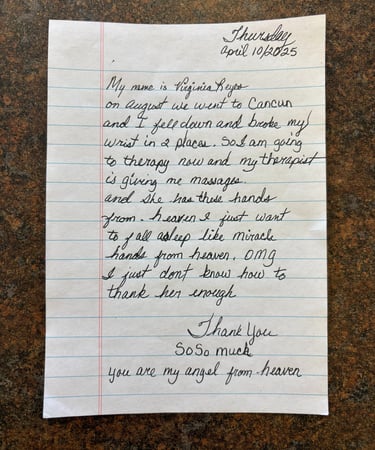 Thursday
April 10/2025
My nme is Virginia Reyes
on august we went to Cancun
and I fell down and broke my
wrist in 2 places. So I am going
to therapy now and my therapist
is giving me massages.
and she has these hands
from. heaven I just want
to fall asleep like miracle
hands from heaven. OMG
I just don't know how to
thank her enough
Thank You
SoSo much
you are my angel from heaven